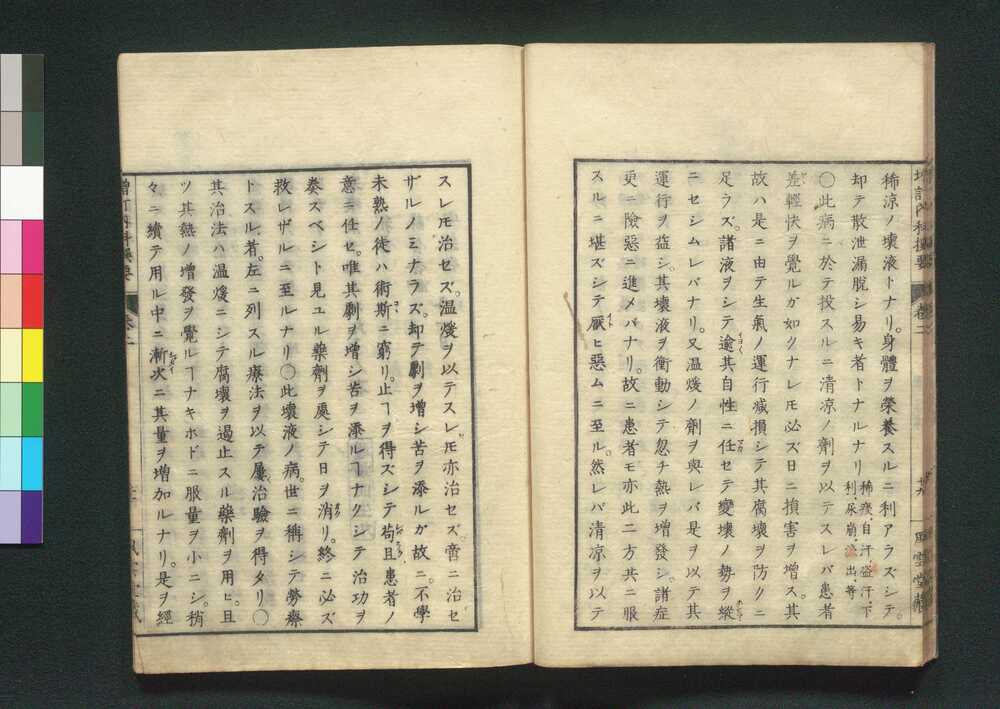 増訂内科撰要 卷二 十九 風雲堂藏
稀涼ノ壊液トナリ。身體ヲ榮養スルニ利アラズシテ。
却テ散泄漏脱シ易キ者トナルナリ 稀痰、自汗、盗汗、下利、尿崩、 出、等
〇此病ニ於テ投スルニ清涼ノ劑ヲ以テスレバ患者
差輕快ヲ覺ルガ如クナレ𪜈必ズ日ニ損害ヲ增ス。其
故ハ是ニ由テ生氣ノ運行减損シテ其腐壊ヲ防クニ
足ラズ。諸液ヲシテ逾其自性ニ任セテ變壊ノ勢ヲ縱
ニセシムレバナリ。又温煖ノ劑ヲ與レバ是ヲ以テ其
運行ヲ益シ。其壊液ヲ衝動シテ忽チ熱ヲ增發シ。諸症
更ニ險惡ニ進メバナリ。故ニ患者モ亦此二方共ニ服
スルニ堪ズシテ厭ヒ惡ムニ至ル。然レバ清凉ヲ以テ
スレ𪜈治セズ。温煖ヲ以テスレ𪜈亦治セズ。啻ニ治セ
ザルノミナラズ。却テ劇ヲ增シ苦ヲ添ルガ故ニ。不學
未熟ノ徒ハ術斯ニ窮リ。止ヿヲ得ズシテ苟且患者ノ
意ニ任セ。唯其劇ヲ增シ苦ヲ添ルヿナクシテ治功ヲ
奏スベシト見ユル藥劑ヲ處シテ日ヲ消リ。終ニ必ズ
救レザルニ至ルナリ〇此壊液ノ病。世ニ稱シテ勞瘵
トスル者。左ニ列スル療法ヲ以テ屢治驗ヲ得タリ〇
其治法ハ温煖ニシテ腐壊ヲ遏止スル藥劑ヲ用ヒ。且
ツ其熱ノ增發ヲ覺ルヿナキホドニ服量ヲ小ニシ。稍
々ニ續テ用ル中ニ漸次ニ其量ヲ增加ルナリ。是ヲ經